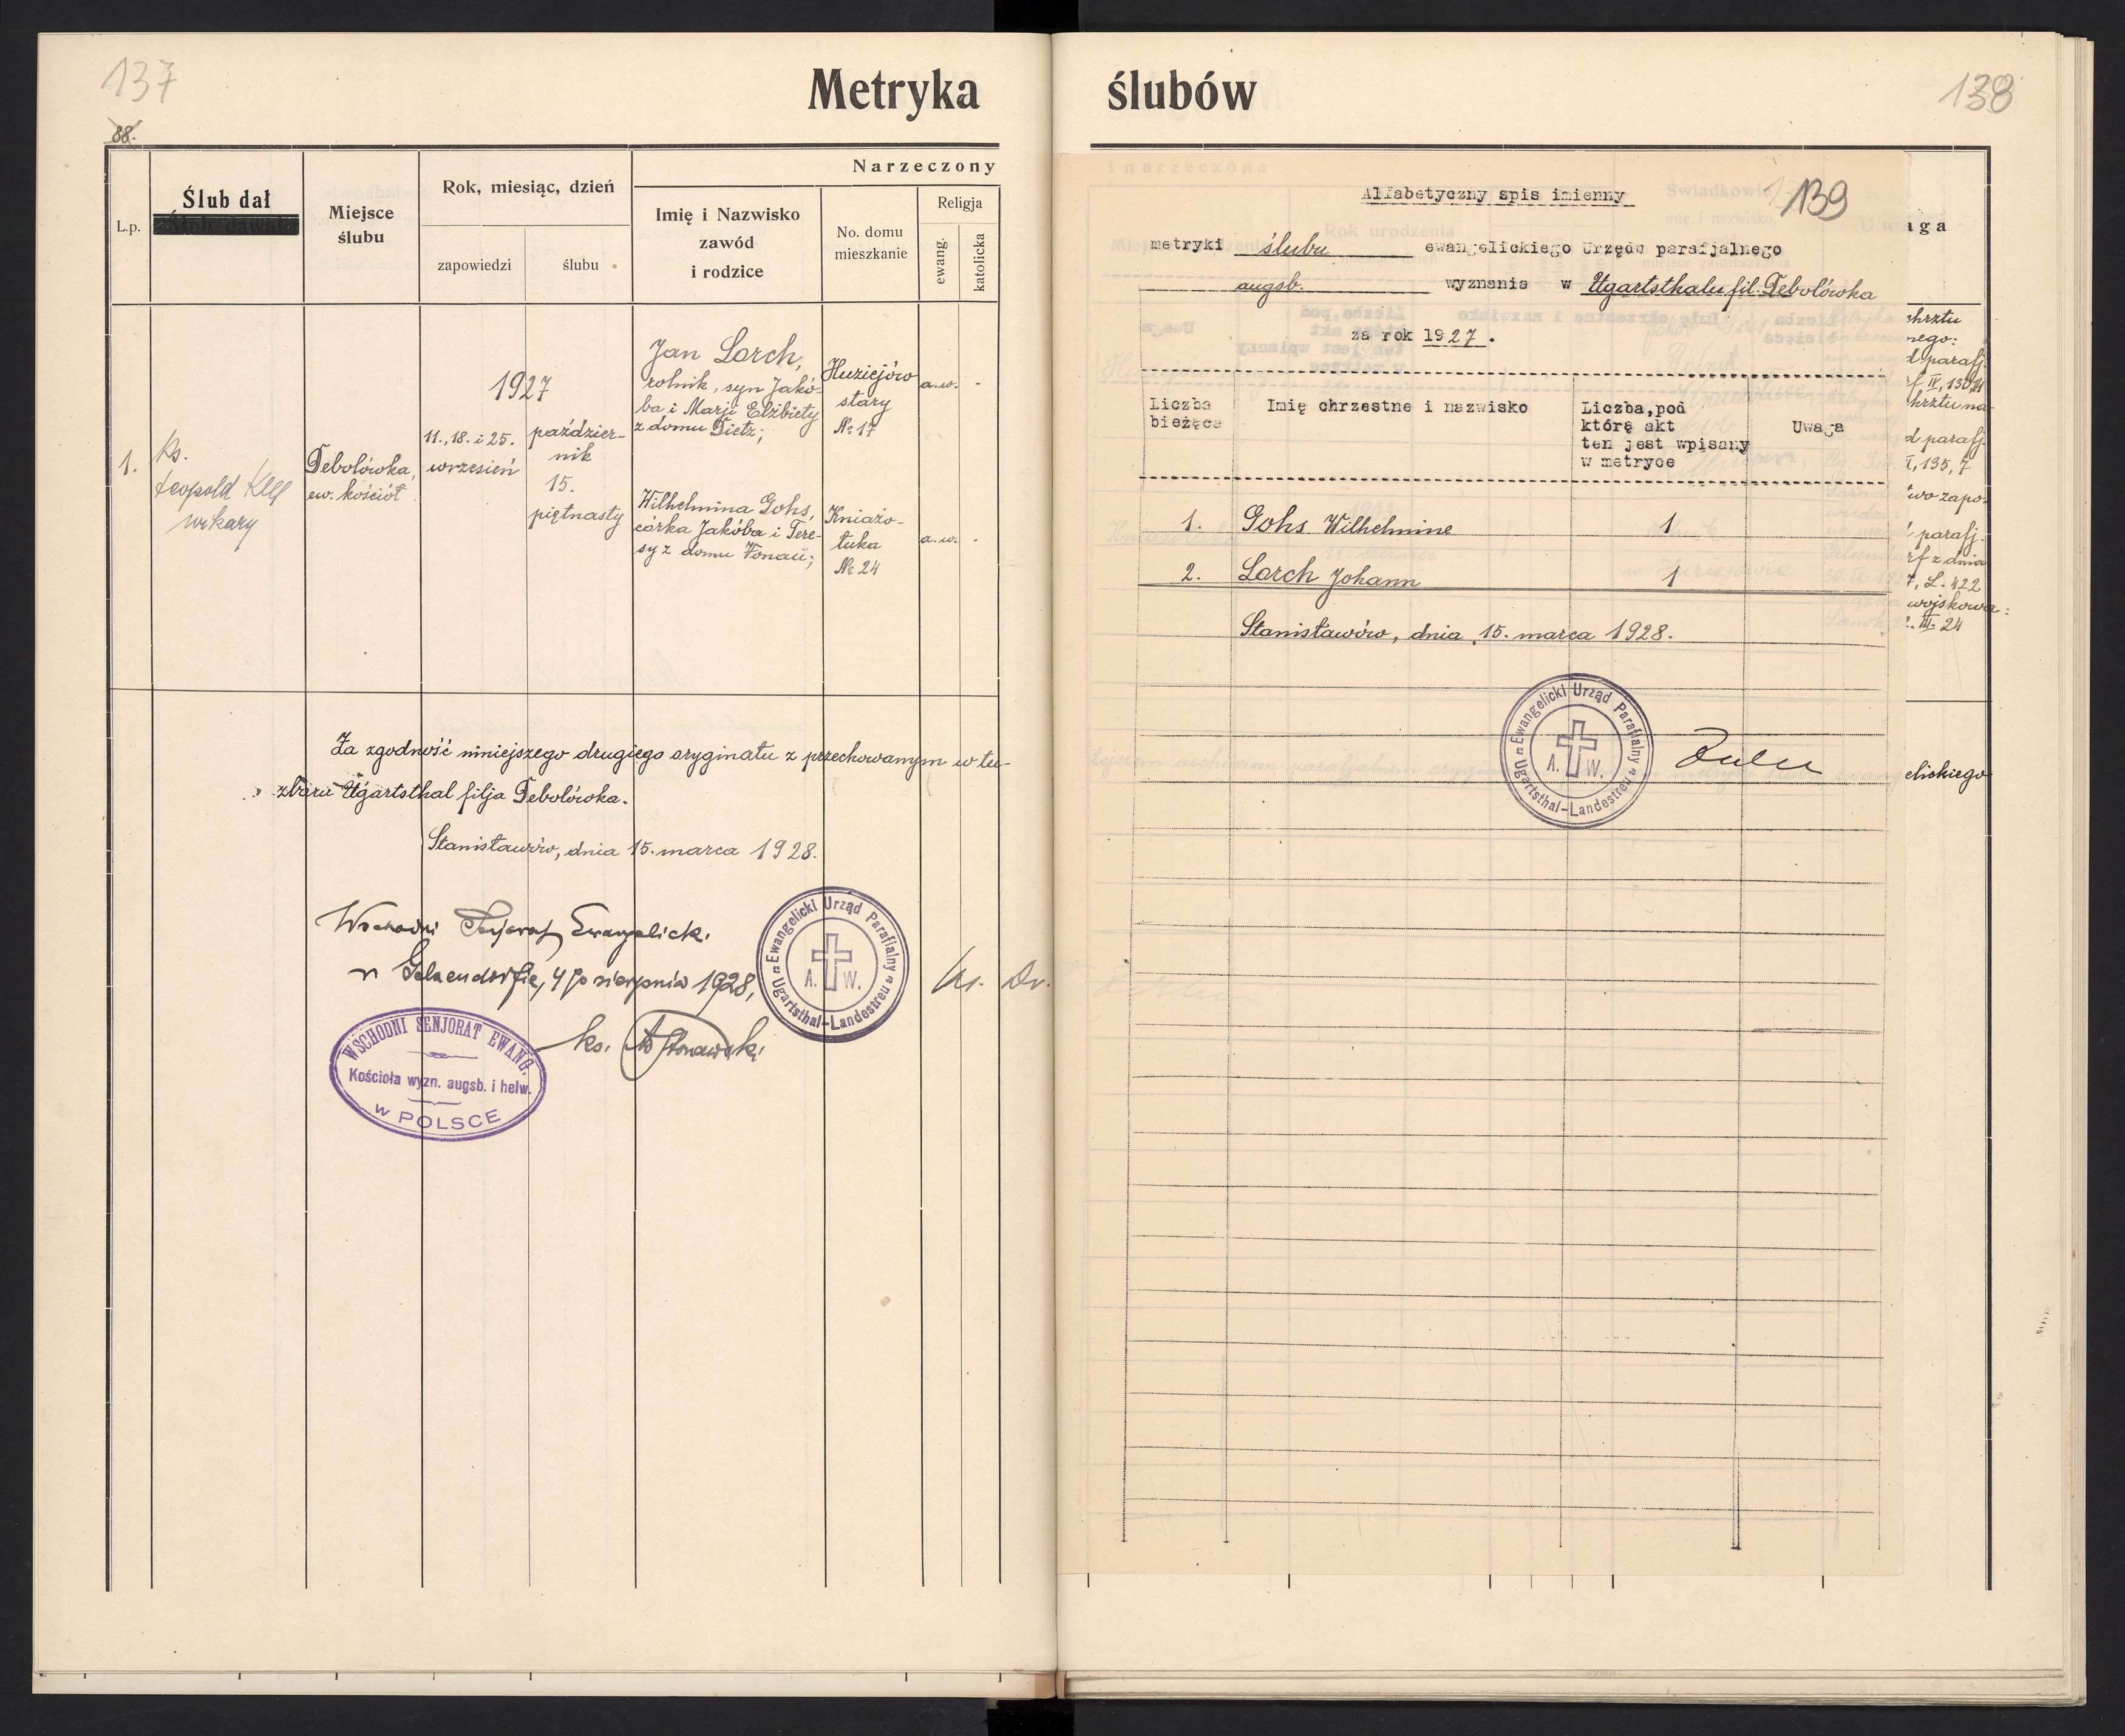 137
88.
Metryka
L.p.
Ślub dał
Miejsce
ślubu
Rok, miesiąc, dzień
zapowiedzi
ślubu
Narzeczony
Imię i Nazwisko
zawód
i rodzice
No. domu
mieszkanie
Religja
ewang.
katolicka
1.
Ks.
Leopold
wikary
Debolówka,
ew. kościół
1927
11., 18. i 25.
wrzesień
paździer-
nik
15.
piętnasty
Jan Lorch,
rolnik, syn Jakó-
ba i Marji Elżbiety
z domu Dietz;
Huziejów
stary
№ 17
a. w.
-
Wilhelmina Gohs,
córka Jakóba i Tere-
sy z domu Vonau;
Kniazo-
łuka
№ 24
a. w.
-
Za zgodność niniejszego drugiego oryginału z przechowanym w tu-
zboru Ugartsthal filja Debolówka.
Stanisławów, dnia 15. marca 1928.
Wschodni Senjorat Ewangelick.
w Gelsendorfie, 4 go sierpnia 1928,
ks.
Ewangelicki Urząd Parafialny
Ugartsthal-Landestreu
A. W.
Ks. Dr.
WSCHODNI SENJORAT EWANG.
Kościoła wyzn. augsb. i helw.
w POLSCE
ślubów
138
139
Alfabetyczny spis imienny
metryki ślubu ewangelickiego Urzędu parafjalnego
augsb. wyznania w Ugartsthalu fil. Debolówka
za rok 1927.
Liczba
bieżąca
Imię chrzestne i nazwisko
Liczba,pod
którą akt
ten jest wpisany
w metryce
Uwaga
1. Gohs Wilhelmine 1
2. Lorch Johann 1
Stanisławów, dnia 15. marca 1928.
Ewangelicki Urząd Parafialny
Ugartsthal-Landestreu
A. W.
aga
chrztu
nego:
d parafj.
rf IV, 130,14
chrztu na-
d parafj.
I, 135, 7
two zapo-
parafj.
rf z dnia
7, L. 422
wojskowa:
III. 24
elickiego